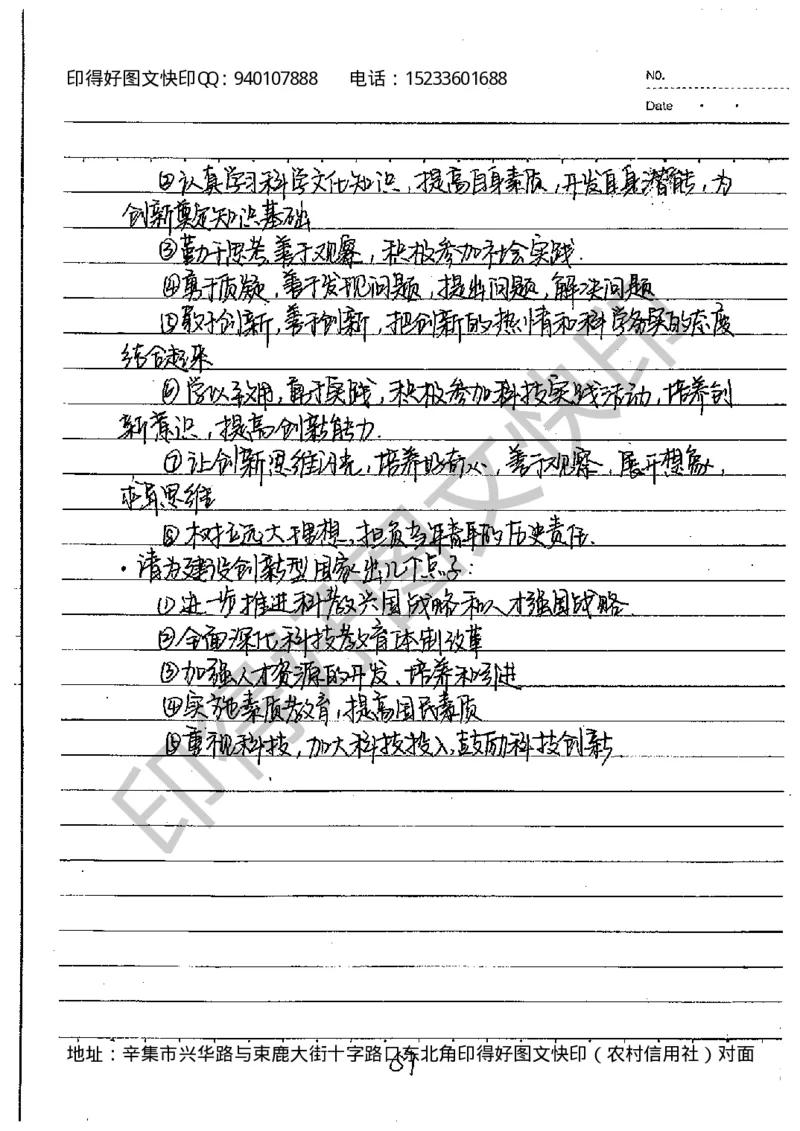 印得好图文快印QQ：940107888 电话：15233601688
NO.
Date
②认真学习科学文化知识，提高自身素质，开发自身潜能，为
创新奠定知识基础
③勤于思考善于观察，积极参加社会实践.
④勇于质疑，善于发现问题，提出问题，解决问题
⑤敢于创新，善于创新，把创新的热情和科学务实的态度
结合起来
⑥学以致用，勇于实践，积极参加科技实践活动，培养创
新意识，提高创新能力.
⑦让创新思维闪光，培养好奇心，善于观察，展开想象，
求异思维
⑧树立远大理想，担负当年青年的历史责任.
·请为建设创新型国家出几个点子：
①进一步推进科教兴国战略和人才强国战略.
②全面深化科技教育体制改革
③加强人才资源的开发、培养和引进
④实施素质教育，提高国民素质
⑤重视科技，加大科技投入，鼓励科技创新.
印得好图文快印
地址：辛集市兴华路与束鹿大街十字路口东北角印得好图文快印（农村信用社）对面